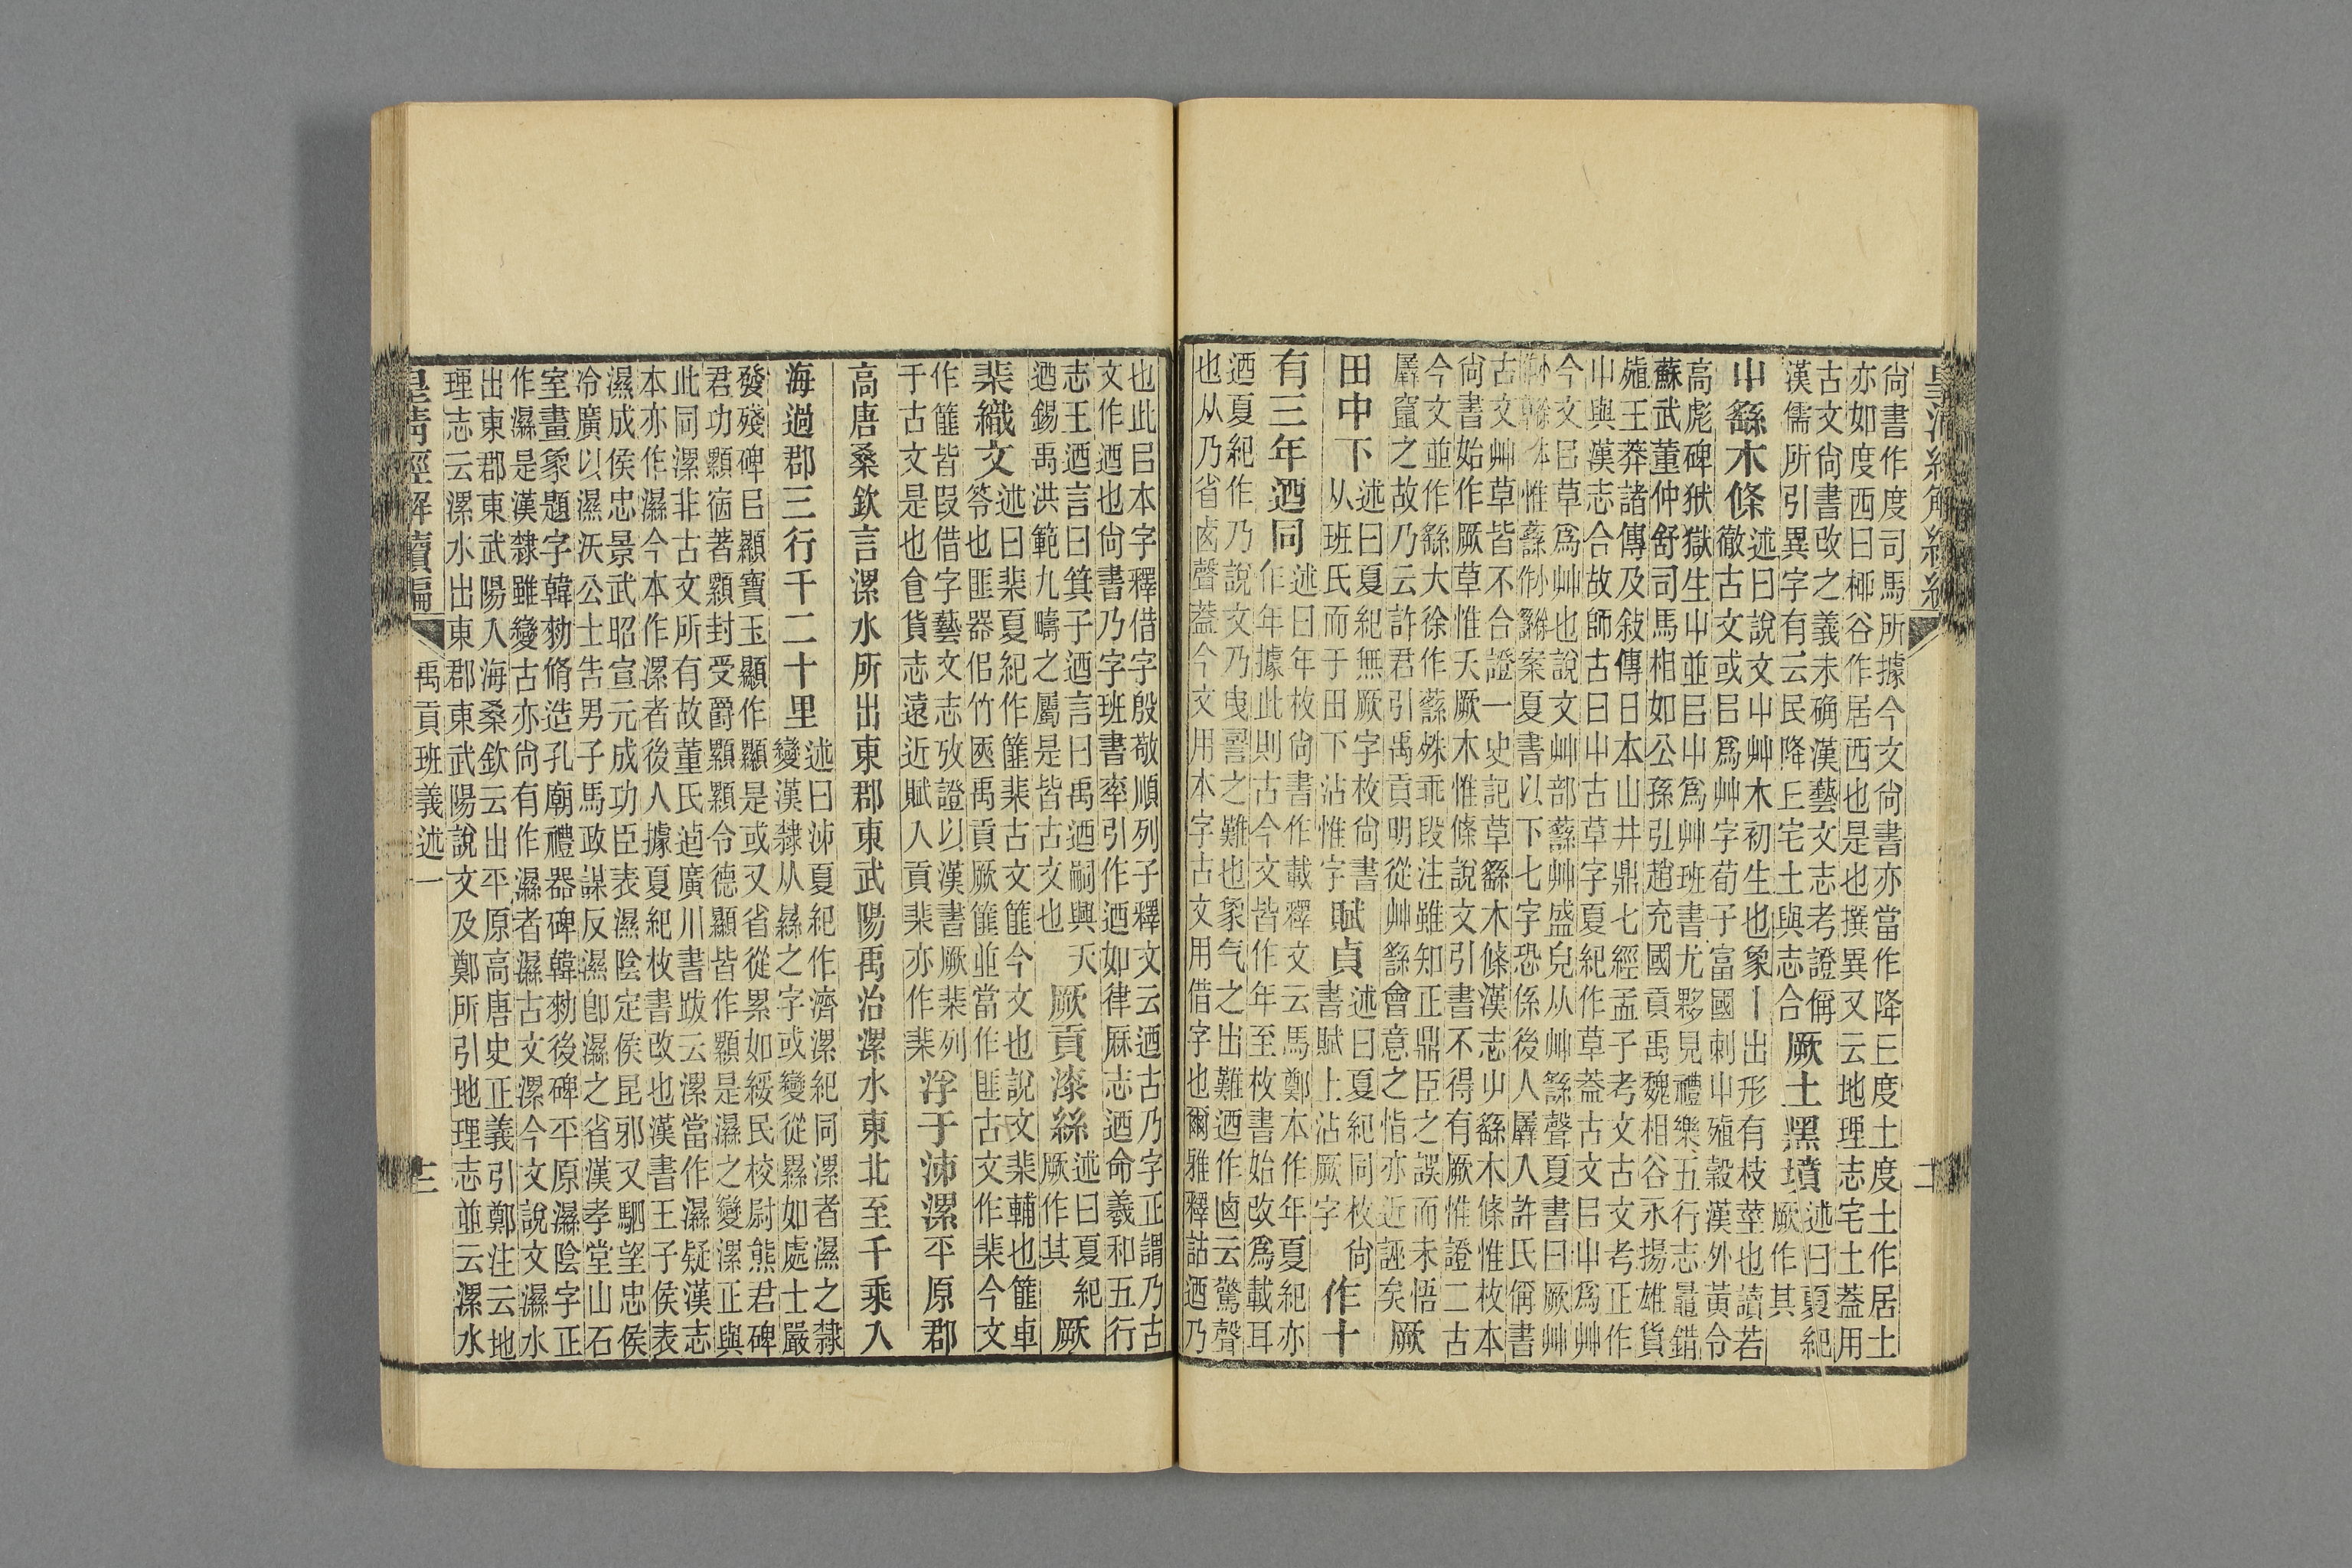 尙書作度司馬所據今文尙書亦當作降丘度土度土作居土
亦如度西曰柳谷作居西也是也撰異又云地理志宅土蓋用
古文尙書改之義未确漢藝文志考證偁
漢儒所引異字有云民降丘宅土與志合
厥土黑墳
述曰夏紀
厥作其
屮繇木條
述曰說文屮艸木初生也象丨出形有枝莖也讀若
徹古文或㠯爲艸字荀子富國刺屮殖穀漢外黃令
高彪碑狱獄生屮並㠯屮爲艸班書尤夥見禮樂五行志鼂錯
蘇武董仲舒司馬相如公孫引趙充國貢禹魏相谷永揚雄貨
殖王莽諸傳及敍傳日本山井鼎七經孟子考文古文考正作
屮與漢志合故師古曰屮古草字夏紀作草蓋古文㠯屮爲艸
今文㠯草爲艸也說文艸部蘨艸盛皃从艸繇聲夏書曰厥艸
惟蘨
案夏書以下七字恐係後人羼入許氏偁書
古文艸草皆不合證一史記草繇木條漢志屮繇木條惟枚本
尙書始作厥草惟夭厥木惟條說文引書不得有厥惟證二古
今文並作繇大徐作蘨殊乖段注雖知正鼎臣之誤而未悟
羼竄之故乃云許君引禹貢明從艸繇會意之恉亦近誣矣
厥
田中下
述曰夏紀無厥字枚尙書
从班氏而于田下沾惟字
賦貞
述曰夏紀同枚尙
書賦上沾厥字
作十
有三年迺同
述曰年枚尙書作載釋文云馬鄭本作年夏紀亦
作年據此則古今文皆作年至枚書始改爲載耳
迺夏紀作乃說文乃曳䛐之難也象气之出難迺作𠧟云驚聲
也从乃省𠧪聲蓋今文用本字古文用借字也爾雅釋詁迺乃
也此㠯本字釋借字殷敬順列子釋文云迺古乃字正謂乃古
文作迺也尙書乃字班書率引作迺如律厤志迺命羲和五行
志王迺言曰箕子迺言曰禹迺嗣興天
迺錫禹洪範九疇之屬是皆古文也
厥貢漆絲
述曰夏紀
厥作其
厥
棐織文
述曰棐夏紀作篚棐古文篚今文也說文棐輔也篚車
笭也匪器佀竹匧禹貢厥篚並當作匪古文作棐今文
作篚皆叚借字藝文志攷證以漢書厥棐列
于古文是也食貨志遠近賦入貢棐亦作棐
浮于泲漯
平原郡
高唐桑欽言漯水所出東郡東武陽禹治漯水東北至千乘入
海過郡三行千二十里
述曰泲夏紀作濟漯紀同漯者濕之隸
變漢隸从㬎之字或變從㬎如處士嚴
發殘碑㠯顯寶玉顯作顯是或又省從累如綏民校尉熊君碑
君功顯宿著顯封受爵顯顯令德顯皆作顯是濕之變漯正與
此同漯非古文所有故董氏逌廣川書跋云漯當作濕疑漢志
本亦作濕今本作漯者後人據夏紀枚書改也漢書王子侯表
濕成侯忠景武昭宣元成功臣表濕陰定侯昆邪又駟望忠侯
冷廣以濕沃公士告男子馬政謀反濕卽濕之省漢孝堂山石
室畫象題字韓勑脩造孔廟禮器碑韓勑後碑平原濕陰字正
作濕是漢隸雖變古亦尙有作濕者濕古文漯今文說文濕水
出東郡東武陽入海桑欽云出平原高唐史正義引鄭注云地
理志云漯水出東郡東武陽說文及鄭所引地理志並云漯水
皇淸經解續編
禹貢班義述一